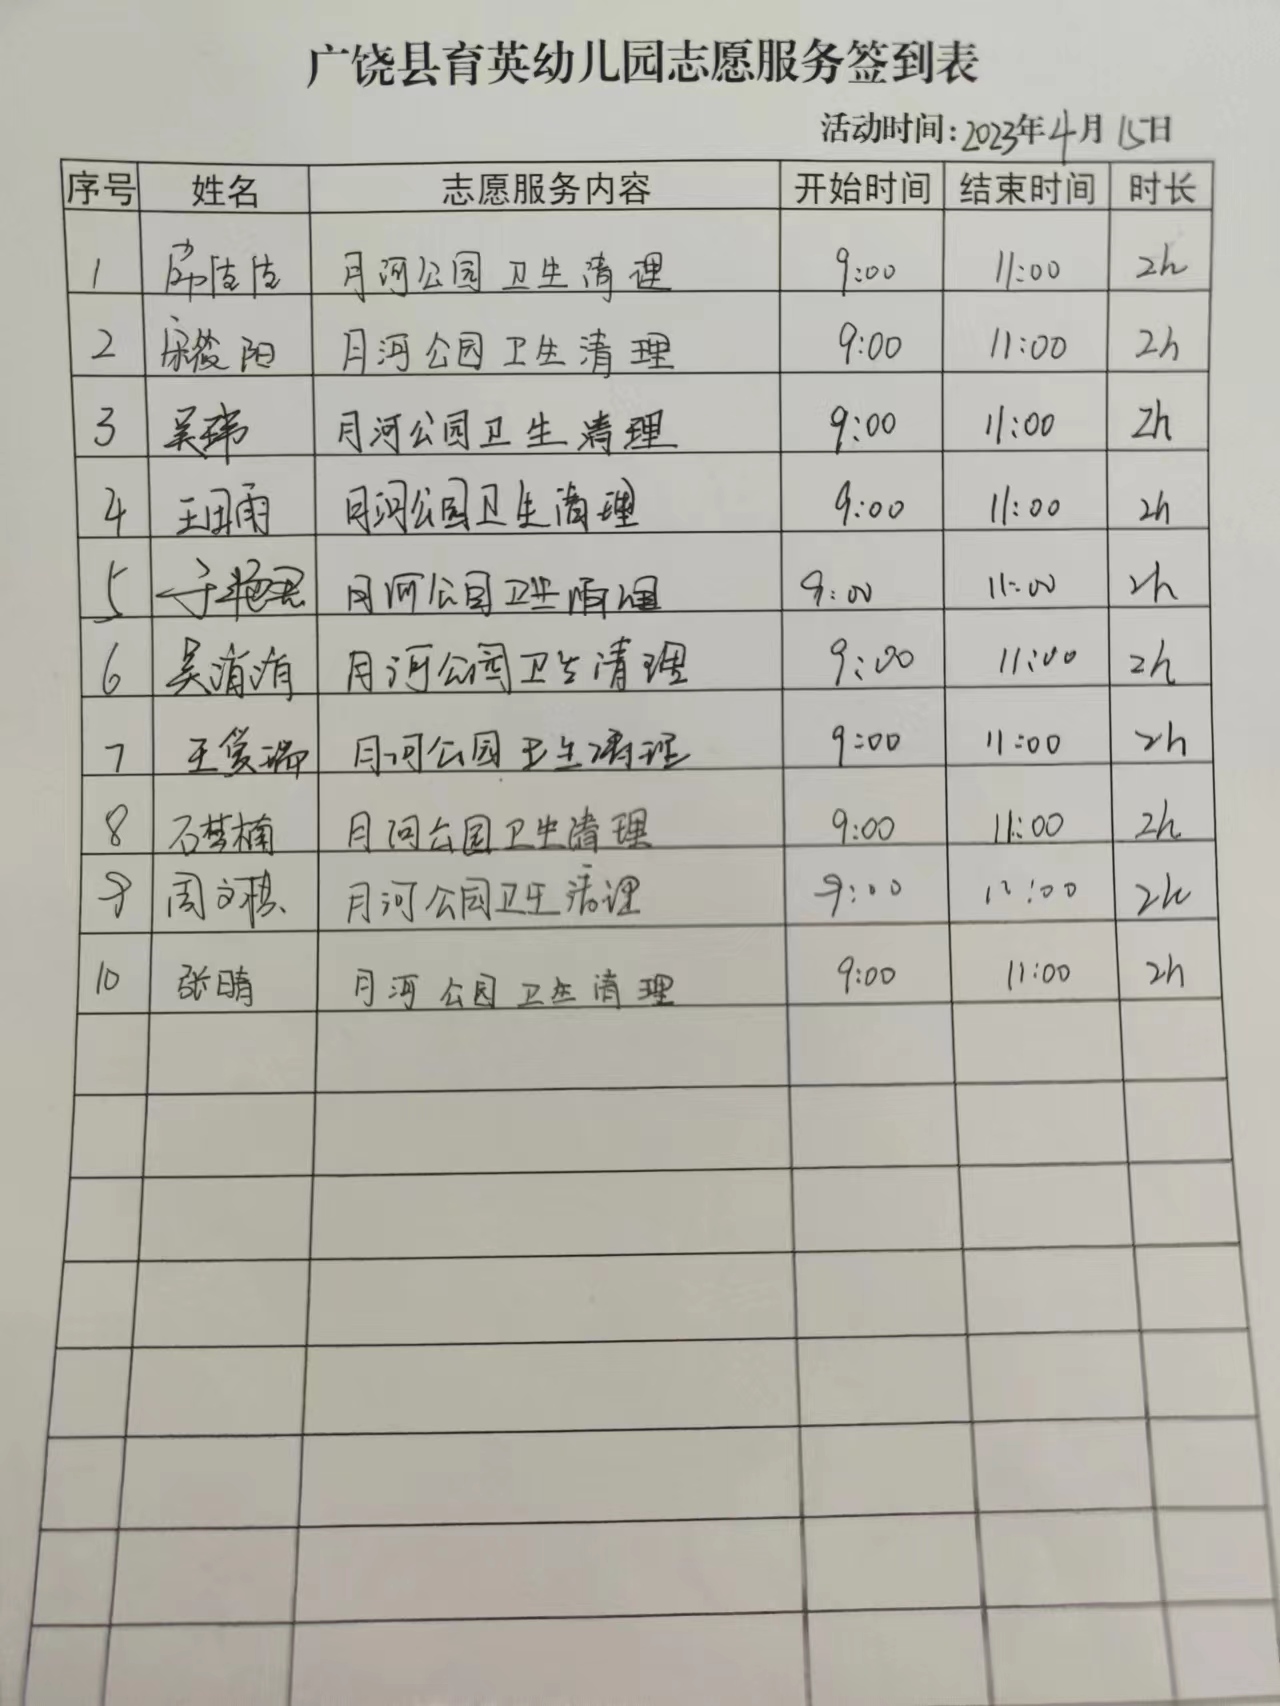 广饶县育英幼儿园志愿服务签到表
活动时间:2023年4月15日
序号 姓名 志愿服务内容 开始时间 结束时间 时长
1 月河公园卫生清理 9:00 11:00 2h
2 宋俊阳 月河公园卫生清理 9:00 11:00 2h
3 吴玮 月河公园卫生清理 9:00 11:00 2h
4 王田雨 月河公园卫生清理 9:00 11:00 2h
5 于艳君 月河公园卫生清理 9:00 11:00 2h
6 吴洧洧 月河公园卫生清理 9:00 11:00 2h
7 王爱瑞 月河公园卫生清理 9:00 11:00 2h
8 石梦楠 月河公园卫生清理 9:00 11:00 2h
9 周文棋 月河公园卫生清理 9:00 11:00 2h
10 张晴 月河公园卫生清理 9:00 11:00 2h